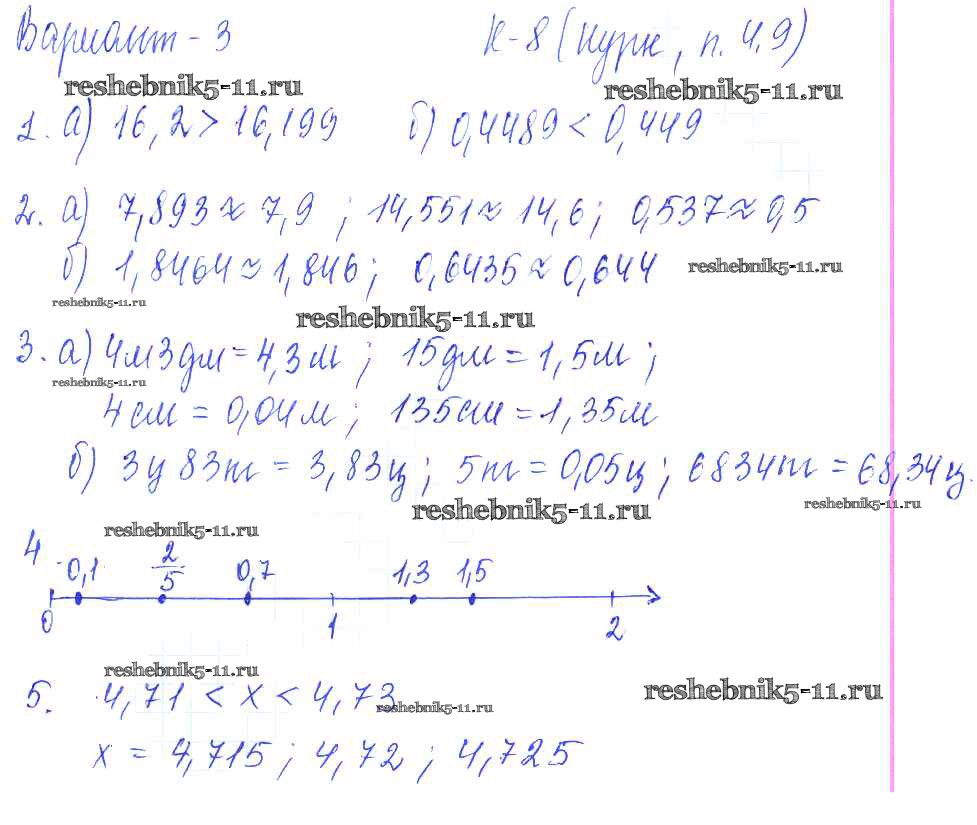 Вариант - 3 К-8 (Нурк, п. 4.9)
reshebnik5-11.ru reshebnik5-11.ru
1. а) 16,2 > 16,199 б) 0,4489 < 0,449
2. а) 7,893 ≈ 7,9 ; 14,551 ≈ 14,6 ; 0,537 ≈ 0,5
б) 1,8464 ≈ 1,846 ; 0,6435 ≈ 0,644 reshebnik5-11.ru
reshebnik5-11.ru
reshebnik5-11.ru
3. а) 4м 3дм = 4,3м ; 15дм = 1,5м ;
reshebnik5-11.ru
4см = 0,04м ; 135см = 1,35м
б) 3ц 83т = 3,83ц ; 5т = 0,05ц ; 6834т = 68,34ц.
reshebnik5-11.ru reshebnik5-11.ru
reshebnik5-11.ru
4. 0,1 2/5 0,7 1,3 1,5
0 1 2
reshebnik5-11.ru
5. 4,71 < x < 4,73 reshebnik5-11.ru
reshebnik5-11.ru
x = 4,715 ; 4,72 ; 4,725